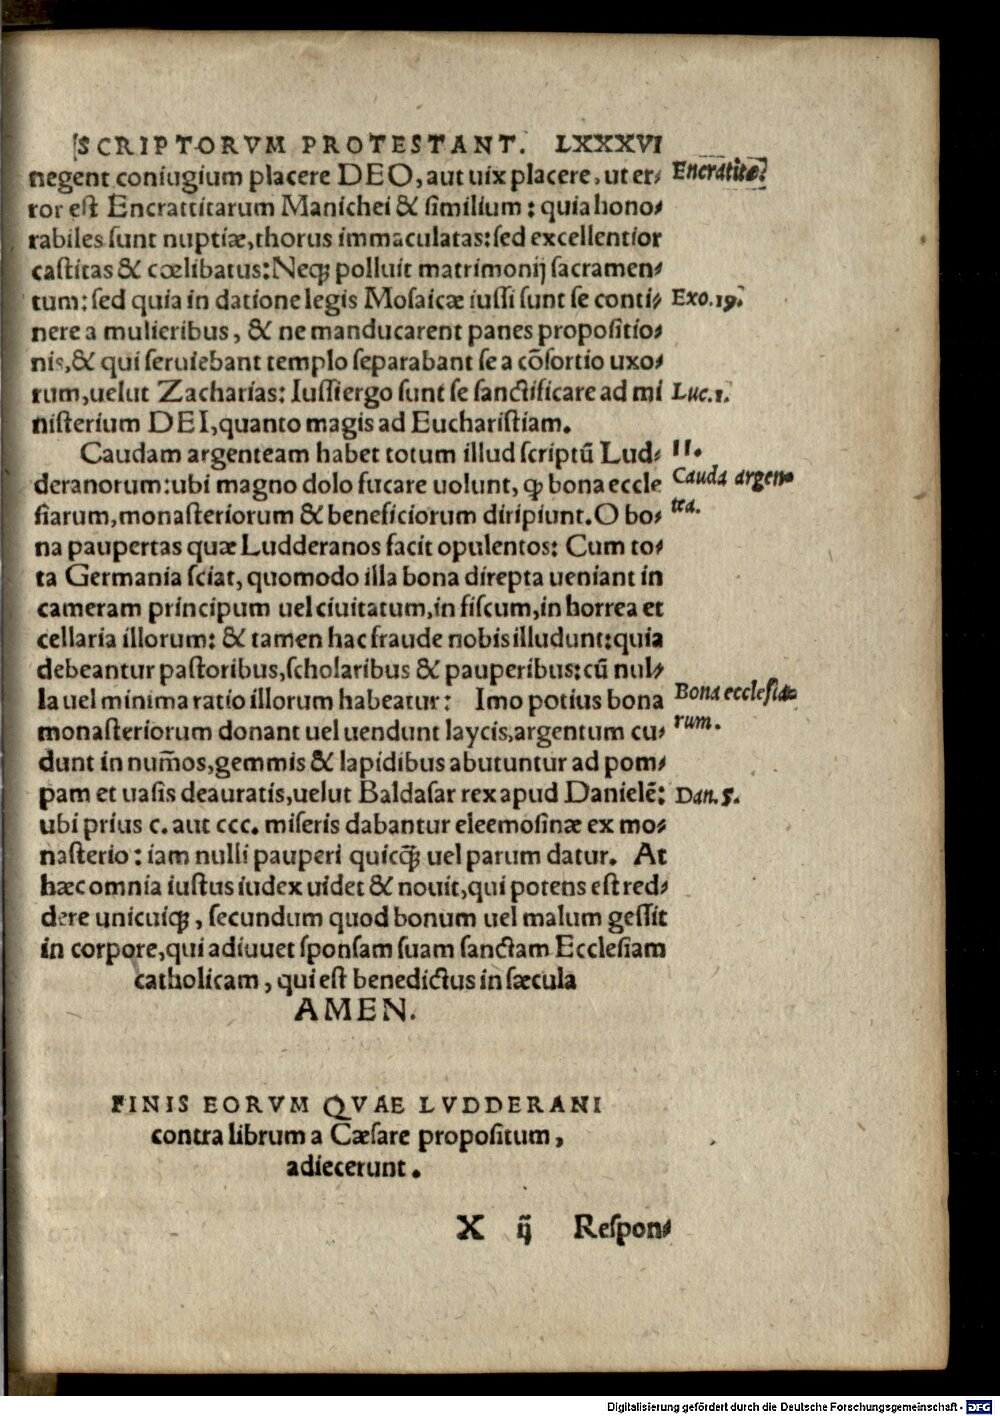 SCRIPTORVM PROTESTANT. LXXXVI
negent coniugium placere DEO, aut uix placere, ut er⸗
Encratitæ.
ror est Encratitarum Manichei & similium: quia hono⸗
rabiles sunt nuptiæ, thorus immaculatas: sed excellentior
castitas & cœlibatus: Neqꝫ polluit matrimonij sacramen⸗
tum: sed quia in datione legis Mosaicæ iussi sunt se conti⸗
Exo.19.
nere a mulieribus, & ne manducarent panes propositio⸗
nis, & qui seruiebant templo separabant se a cōsortio uxo⸗
rum, uelut Zacharias: Iussi ergo sunt se sanctificare ad mi
Luc.1.
nisterium DEI, quanto magis ad Eucharistiam.
Caudam argenteam habet totum illud scriptū Lud⸗
II.
deranorum: ubi magno dolo fucare uolunt, ꝙ bona eccle
Cauda argen⸗
siarum, monasteriorum & beneficiorum diripiunt. O bo⸗
tea.
na paupertas quæ Ludderanos facit opulentos: Cum to⸗
ta Germania sciat, quomodo illa bona direpta ueniant in
cameram principum uel ciuitatum, in fiscum, in horrea et
cellaria illorum: & tamen hac fraude nobis illudunt: quia
debeantur pastoribus, scholaribus & pauperibus: cū nul⸗
la uel minima ratio illorum habeatur: Imo potius bona
Bona ecclesia⸗
monasteriorum donant uel uendunt laycis, argentum cu⸗
rum.
dunt in num̄os, gemmis & lapidibus abutuntur ad pom⸗
pam et uasis deauratis, uelut Baldasar rex apud Danielē:
Dan.5.
ubi prius c. aut ccc. miseris dabantur eleemosinæ ex mo⸗
nasterio: iam nulli pauperi quicꝙꝫ uel parum datur. At
hæc omnia iustus iudex uidet & nouit, qui potens est red⸗
dere unicuiqꝫ, secundum quod bonum uel malum gessit
in corpore, qui adiuuet sponsam suam sanctam Ecclesiam
catholicam, qui est benedictus in sæcula
AMEN.
FINIS EORVM QVAE LVDDERANI
contra librum a Cæsare propositum,
adiecerunt.
X ij Respon⸗
Digitalisierung gefördert durch die Deutsche Forschungsgemeinschaft - DFG